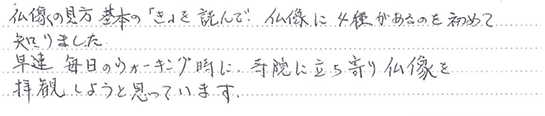 仏像の見方 基本の「き」を読んで 仏像に4種があるのを初めて
知りました
早速 毎日のウォーキング時に、寺院に立ち寄り仏像を
拝観しようと思っています。